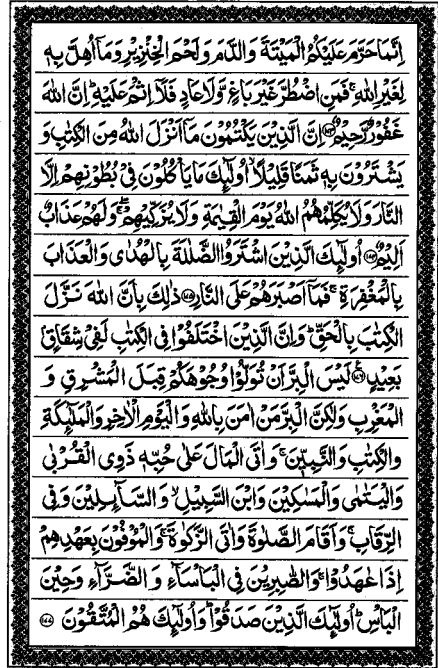 اِنَّمَا حَرَّمَ عَلَيْكُمُ الْمَيْتَةَ وَالدَّمَ وَلَحْمَ الْخِنْزِيْرِ وَمَآ اُهِلَّ بِهٖ
لِغَيْرِ اللّٰهِ ۚ فَمَنِ اضْطُرَّ غَيْرَ بَاغٍ وَّلَا عَادٍ فَلَآ اِثْمَ عَلَيْهِ ؕ اِنَّ اللّٰهَ
غَفُوْرٌ رَّحِيْمٌ ﴿۱۷۳﴾ اِنَّ الَّذِيْنَ يَكْتُمُوْنَ مَآ اَنْزَلَ اللّٰهُ مِنَ الْكِتٰبِ وَ
يَشْتَرُوْنَ بِهٖ ثَمَنًا قَلِيْلًا ۙ اُولٰٓئِكَ مَا يَاْكُلُوْنَ فِيْ بُطُوْنِهِمْ اِلَّا
النَّارَ وَلَا يُكَلِّمُهُمُ اللّٰهُ يَوْمَ الْقِيٰمَةِ وَلَا يُزَكِّيْهِمْ ۖۚ وَلَهُمْ عَذَابٌ
اَلِيْمٌ ﴿۱۷۴﴾ اُولٰٓئِكَ الَّذِيْنَ اشْتَرَوُا الضَّلٰلَةَ بِالْهُدٰى وَالْعَذَابَ
بِالْمَغْفِرَةِ ۚ فَمَآ اَصْبَرَهُمْ عَلَى النَّارِ ﴿۱۷۵﴾ ذٰلِكَ بِاَنَّ اللّٰهَ نَزَّلَ
الْكِتٰبَ بِالْحَقِّ ؕ وَاِنَّ الَّذِيْنَ اخْتَلَفُوْا فِي الْكِتٰبِ لَفِيْ شِقَاقٍۢ
بَعِيْدٍ ﴿۱۷۶﴾ لَيْسَ الْبِرَّ اَنْ تُوَلُّوْا وُجُوْهَكُمْ قِبَلَ الْمَشْرِقِ وَ
الْمَغْرِبِ وَلٰكِنَّ الْبِرَّ مَنْ اٰمَنَ بِاللّٰهِ وَالْيَوْمِ الْاٰخِرِ وَالْمَلٰٓئِكَةِ
وَالْكِتٰبِ وَالنَّبِيّٖنَ ۚ وَاٰتَى الْمَالَ عَلٰى حُبِّهٖ ذَوِي الْقُرْبٰى
وَالْيَتٰمٰى وَالْمَسٰكِيْنَ وَابْنَ السَّبِيْلِ ۙ وَالسَّآئِلِيْنَ وَفِي
الرِّقَابِ ۚ وَاَقَامَ الصَّلٰوةَ وَاٰتَى الزَّكٰوةَ ۚ وَالْمُوْفُوْنَ بِعَهْدِهِمْ
اِذَا عٰهَدُوْا ۚ وَالصّٰبِرِيْنَ فِي الْبَاْسَآءِ وَالضَّرَّآءِ وَحِيْنَ
الْبَاْسِ ؕ اُولٰٓئِكَ الَّذِيْنَ صَدَقُوْا ؕ وَاُولٰٓئِكَ هُمُ الْمُتَّقُوْنَ ﴿۱۷۷﴾